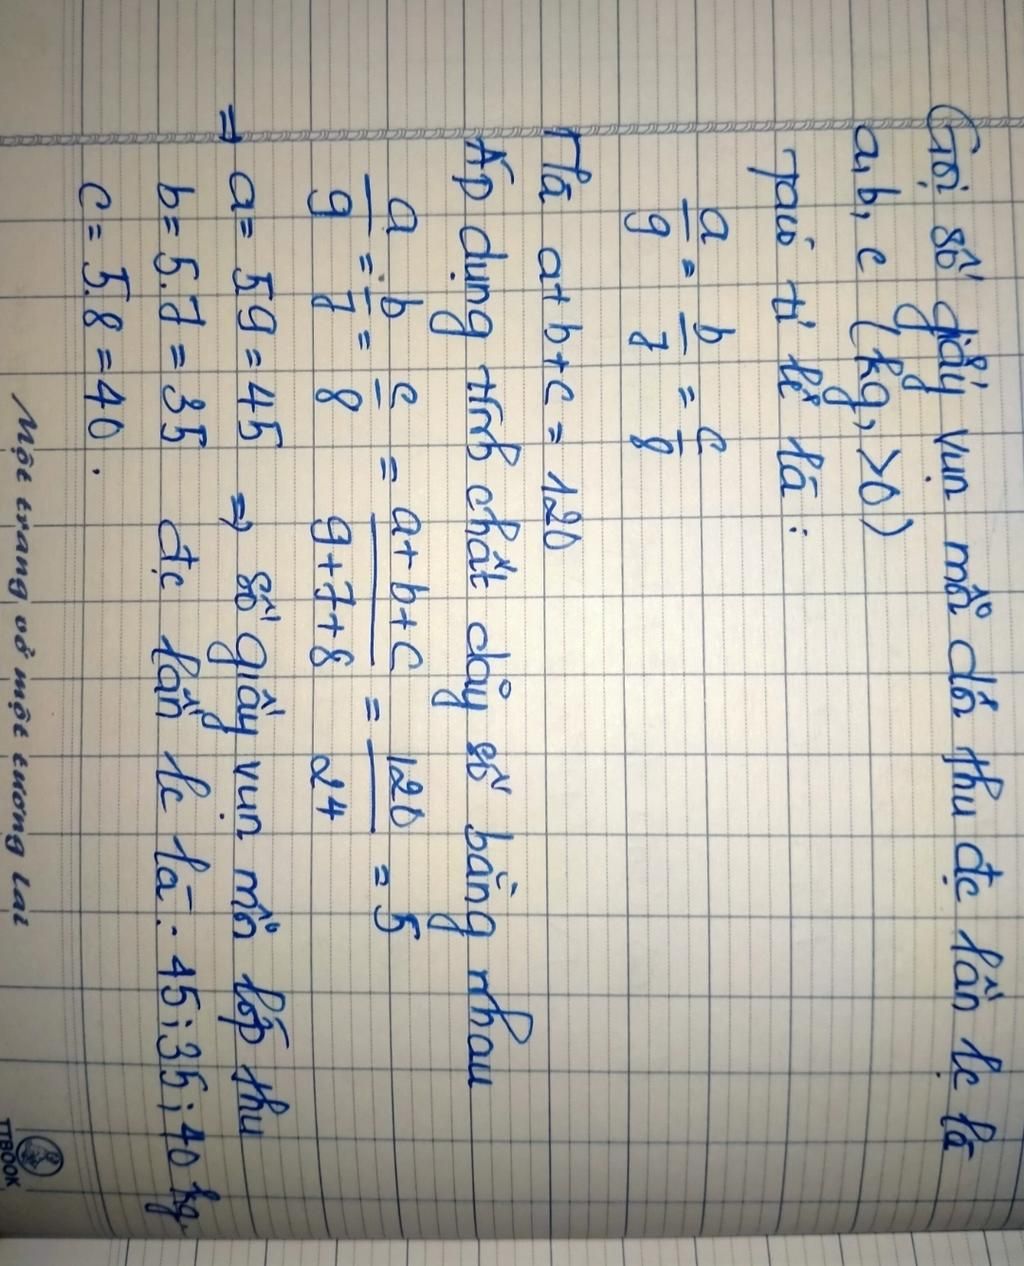 Gọi số giấy vụn mỗi đội thu đc lần lc là
a, b, c (kg, >0)
tỉ lệ là :
a/9 = b/7 = c/8
Mà a+b+c = 120
Áp dụng tính chất dãy số bằng nhau
a/9 = b/7 = c/8 = a+b+c/9+7+8 = 120/24 = 5
⇒ a = 5.9 = 45 ⇒ số giấy vụn mỗi lớp thu
b = 5.7 = 35 đc lần lc là : 45 ; 35 ; 40 kg.
c = 5.8 = 40 .
Một trang vở một tương lai
TTBOOK